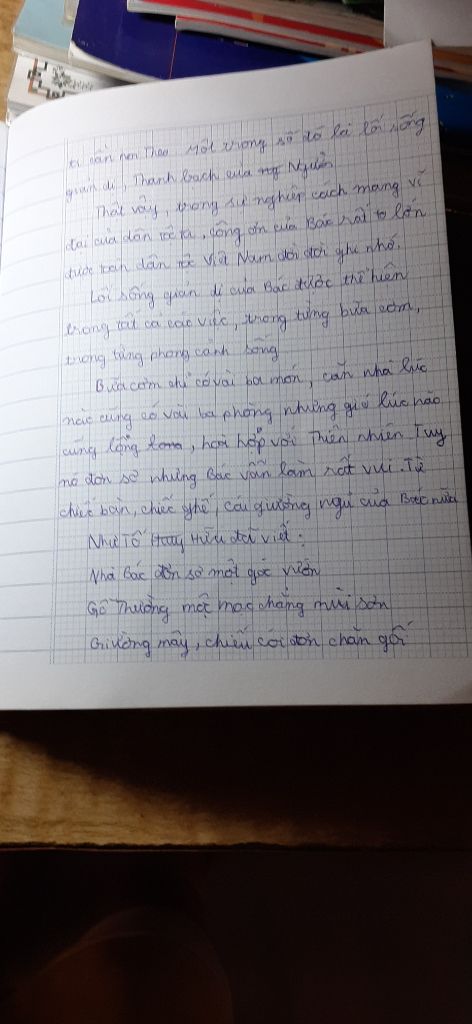 cần noi theo. Một trong số đó là lối sống
giản dị, Thanh bạch của ng Người
Thật vậy, trong sự nghiệp cách mạng vĩ
đại của dân tộc ta, công ơn của Bác rất to lớn
được toàn dân tộc Việt Nam đời đời ghi nhớ.
Lối sống giản dị của Bác được thể hiện
trong tất cả các việc, trong từng bữa cơm,
trong từng phong cảnh sống
Bữa cơm chỉ có vài ba món, căn nhà lúc
nào cũng có vài ba phòng nhưng gió lúc nào
cũng lộng, hòa hợp với Thiên nhiên. Tuy
nó đơn sơ nhưng Bác vẫn làm rất vui. Từ
chiếc bàn, chiếc ghế, cái giường ngủ của Bác nữa
Như Tố Hữu đã viết:
Nhà Bác đơn sơ một góc vườn
Gỗ Thường mộc mạc chẳng mùi sơn
Giường mây, chiếu cói đơn chăn gối